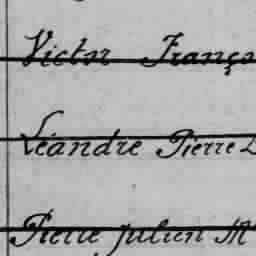 Victor Franço
Léandre Pierre L
Pierre Julien M